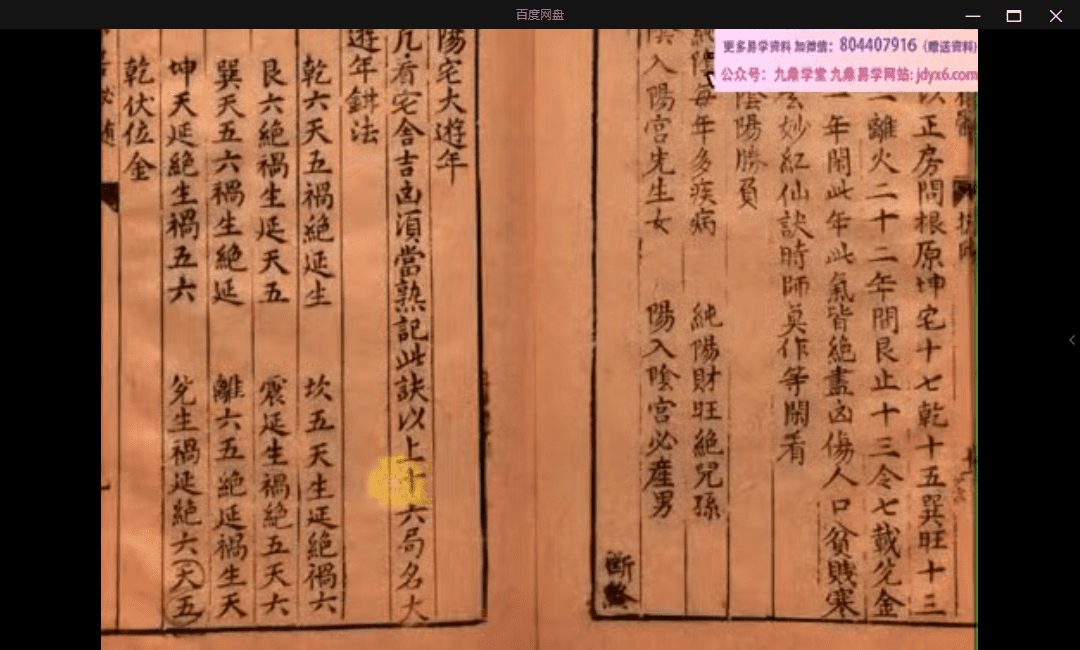 百度网盘
更多易学资料 加微信：804407916（赠送资料）
公众号：九鼎学堂 九鼎易学网站：jdyx6.com
以正房問根原坤宅十七乾十五巽旺十三
二離火二十二年間艮止十三令七載兊金
一年閑此年此氣皆絶盡凶傷人口貧賤寒
玄妙紅仙訣時師莫作等閑看
陰陽勝負
純陰每年多疾病 純陽財旺絶兒孫
陰入陽宮先生女 陽入陰宮必產男
斷終
陽宅大遊年
凡看宅舍吉凶湏當熟記此訣以上十六局名大
遊年鈝法
乾六天五禍絕延生 坎五天生延絕禍六
艮六絕禍生延天五 震延生禍絕五天六
巽天五六禍生絕延 離六五絕延禍生天
坤天延絕生禍五六 兊生禍延絕六天五
乾伏位金